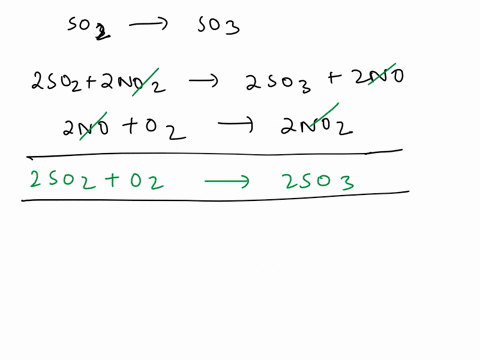 SO₂ → SO₃
2SO₂ + 2NO₂ → 2SO₃ + 2NO
2NO + O₂ → 2NO₂
2SO₂ + O₂ → 2SO₃